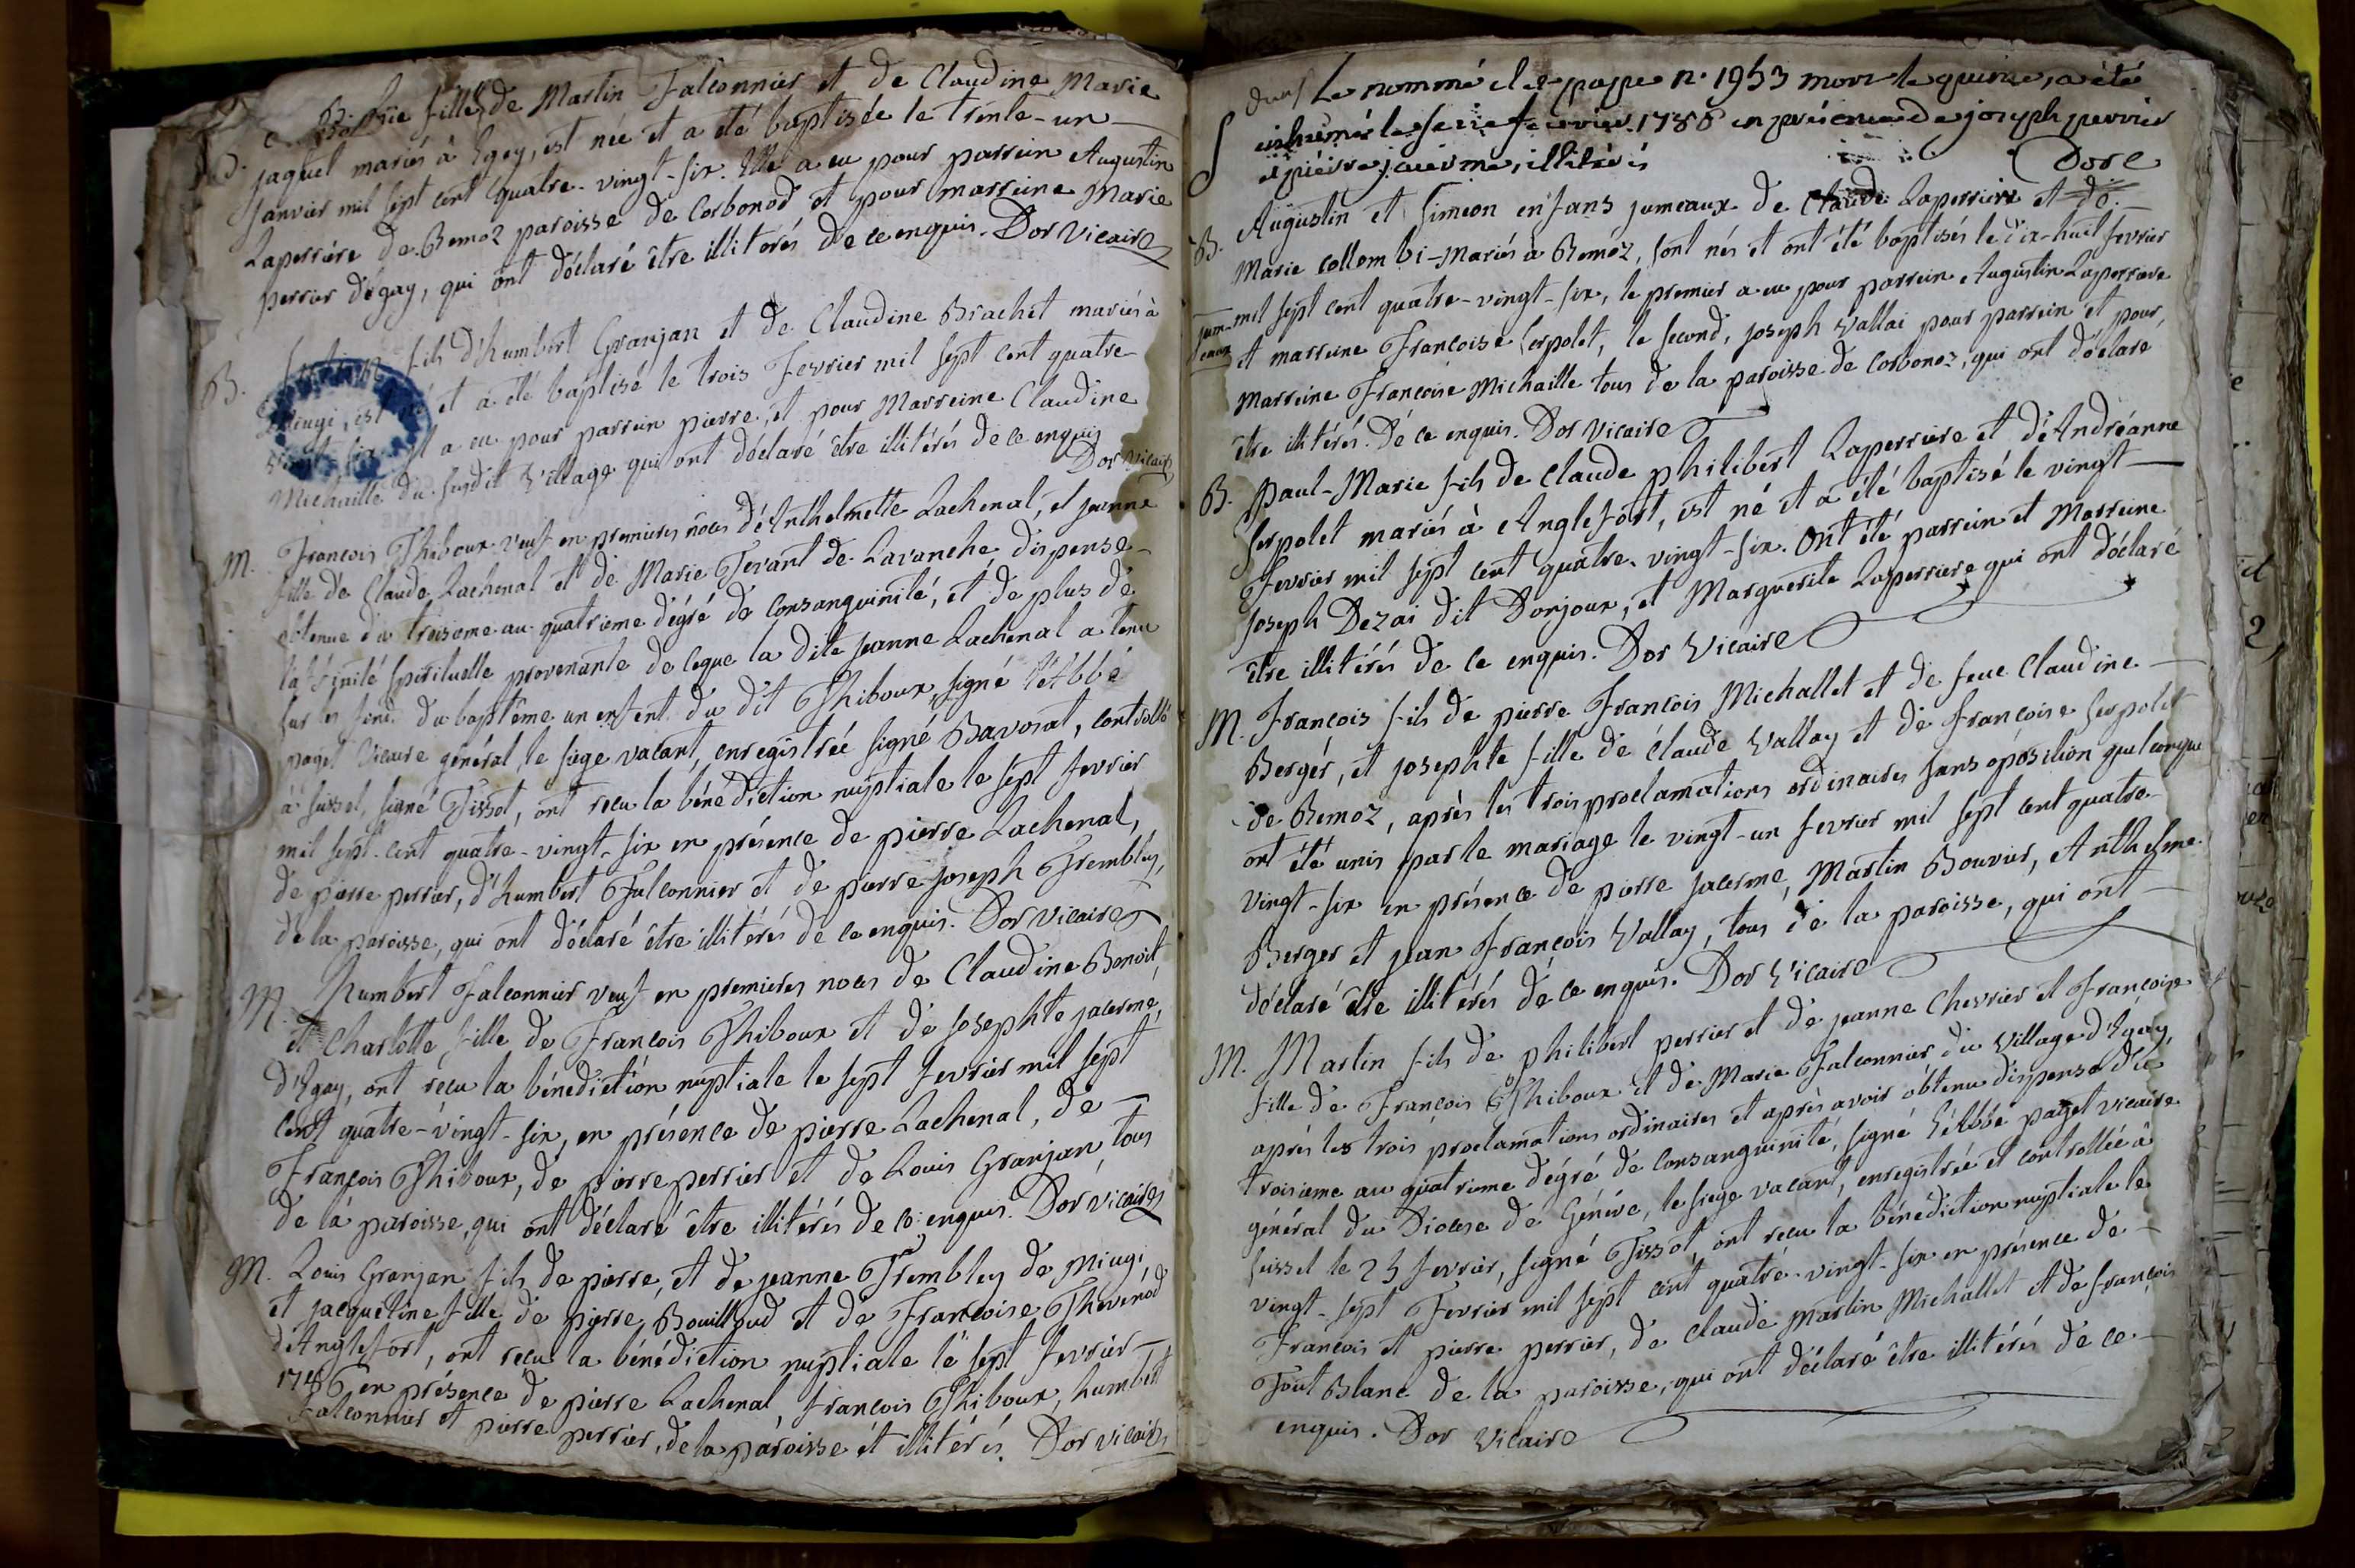 fille de Martin Falconnier et de Claudine Marie
B. jaquet mariés à Egey, est née et a été baptisée le trente-un
janvier mil sept cent quatre-vingt-six. Elle a eu pour parrein Augustin
Laperriére de Bemoz paroisse de Corbonod, et pour marreine Marie
perrier d'égay, qui ont déclaré être illiterés de ce enquis. Dor Vicaire
B. fils d'humbert Granjan et de Claudine Brachet mariés à
Miugi, est né et a été baptisé le trois Fevrier mil sept cent quatre-
vingt-six. Il a eu pour parrein pierre, et pour Marreine Claudine
Michaille du susdit village qui ont déclaré être illitérés de ce enquis
Dor Vicaire
M. François Thiboux veuf en premieres noces d'Anthelmette Lachenal, et jeanne
fille de Claude Lachenal et de Marie Tevant de Lavanche dispense
obtenue du troisieme au quatrieme dégré de Consanguinité, et de plus de
l'afinité spirituelle provenante de ceque la dite jeanne Lachenal a tenu
sur les fonds du baptême un enfent du dit Thiboux, signé l'Abbé
paget Vicaire général, le siege vacant, enregistrée signé Bavosat, controllé
à seissel, signé Tissot, ont reçu la bénédiction nuptiale le sept fevrier
mil sept-cent quatre-vingt-six en présence de pierre Lachenal,
de pierre perrier, d'humbert Falconnier et de pierre joseph Trembley,
de la paroisse, qui ont déclaré être illitérés de ce enquis. Dor Vicaire
M. humbert Falconnier veuf en premieres noces de Claudine Benoit,
et Charlotte fille de François Thiboux et de josephte jacerme,
d'Egay, ont reçu la bénédiction nuptiale le sept fevrier mil sept
cent quatre-vingt-six, en présence de pierre Lachenal, de
François Thiboux, de pierre perrier et de Louis Granjan, tous
de la paroisse, qui ont déclaré être illitérés de ce enquis. Dor Vicaire
M. Louis Granjan fils de pierre, et de jeanne Trembley de Miugi,
et jacquetine fille de pierre Bouilloud et de Françoise Thevenod
d'Anglefort, ont reçu la bénédiction nuptiale le sept fevrier
1786 en présence de pierre Lachenal François Thiboux, humbert
Falconnier et pierre perrier, de la paroisse et illitérés. Dor Vicaire
Le nommé n. 1953 mort le quinze, a été
S inhumé le seize fevrier 1786 en présence de joseph perrier
et pierre jacerme, illitérés
Dor
B. Augustin et Simeon enfans jumeaux de Claude Laperriere et de
Marie Collombi-Mariés à Bemoz, sont nés et ont été baptisés le dix-huit fevrier
jum- mil sept cent quatre-vingt-six, le premier a eu pour parrein Augustin Laperriere
eaux et marreine Françoise Serpolet, le second, joseph Vallai pour parrein et pour
Marreine Françoise Michaille tous de la paroisse de Corbonoz, qui ont déclaré
être illitérés. De ce enquis. Dor Vicaire
B. paul-Marie fils de Claude philibert Laperriere et d'Andréanne
Serpolet mariés à Anglefort, est né et a été baptisé le vingt
Fevrier mil sept cent quatre-vingt-six. Ont été parrein et Marreine
joseph Dezai dit Donjoux, et Marguerite Laperriere qui ont déclaré
être illitérés de ce enquis. Dor Vicaire
M. François fils de pierre François Michallet et de feue Claudine
Berger, et josephte fille de Claude Vallay et de Françoise Serpolet
de Bemoz, après les trois proclamations ordinaires sans oposition quelconque
ont été unis par le mariage le vingt-un fevrier mil sept cent quatre
vingt-six en présence de pierre jacerme, Martin Bouvier, Anthelme
Berger et jean François Vallay, tous de la paroisse, qui ont
déclaré être illitérés de ce enquis. Dor Vicaire
M. Martin fils de philibert perrier et de jeanne Chevrier et Françoise
fille de François Thiboux et de Marie Falconnier du Village d'Egay,
après les trois proclamations ordinaires et après avoir obtenu dispense du
troisieme au quatrieme dégré de Consanguinité, signé l'Abbé paget vicaire
général du Diocese de Géneve, le siege vacant, enregistrée et controllée à
seissel le 25 fevrier, signé Tissot, ont reçu la bénédiction nuptiale le
vingt-sept Fevrier mil sept cent quatre-vingt-six en présence de
François et pierre perrier, de Claude Martin Michallet et de François
Tout Blanc de la paroisse, qui ont déclaré être illitérés de ce
enquis. Dor Vicaire